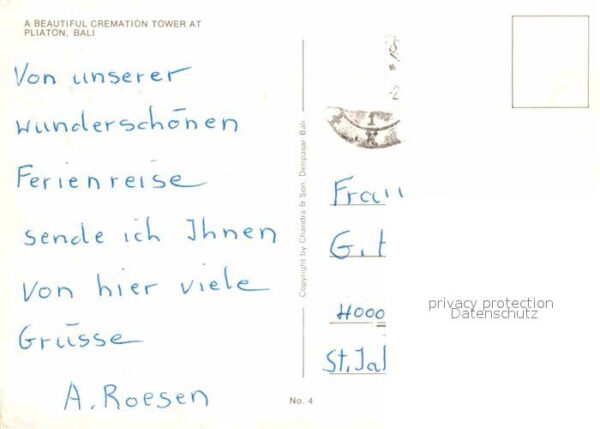 A BEAUTIFUL CREMATION TOWER AT
PLIATON, BALI
Von unserer
wunderschönen
Ferienreise
sende ich Ihnen
von hier viele
Grüsse
A. Roesen
Copyright by Chandra & Son. Denpasar Bali
No. 4
Frau
G.
4000
St.
privacy protection
Datenschutz